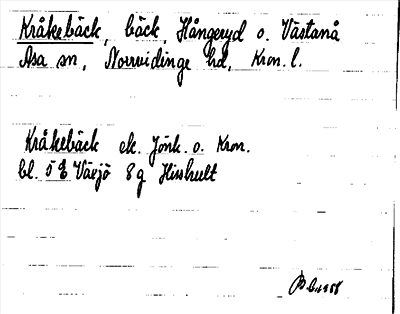 Kråkebäck, bäck, Hångeryd o. Västanå
Asa sn, Norrvidinge hd, Kron. l.
Kråkebäck ek. Jönk. o. Kron.
bl. 5 E Växjö 8 g Hisshult
1958